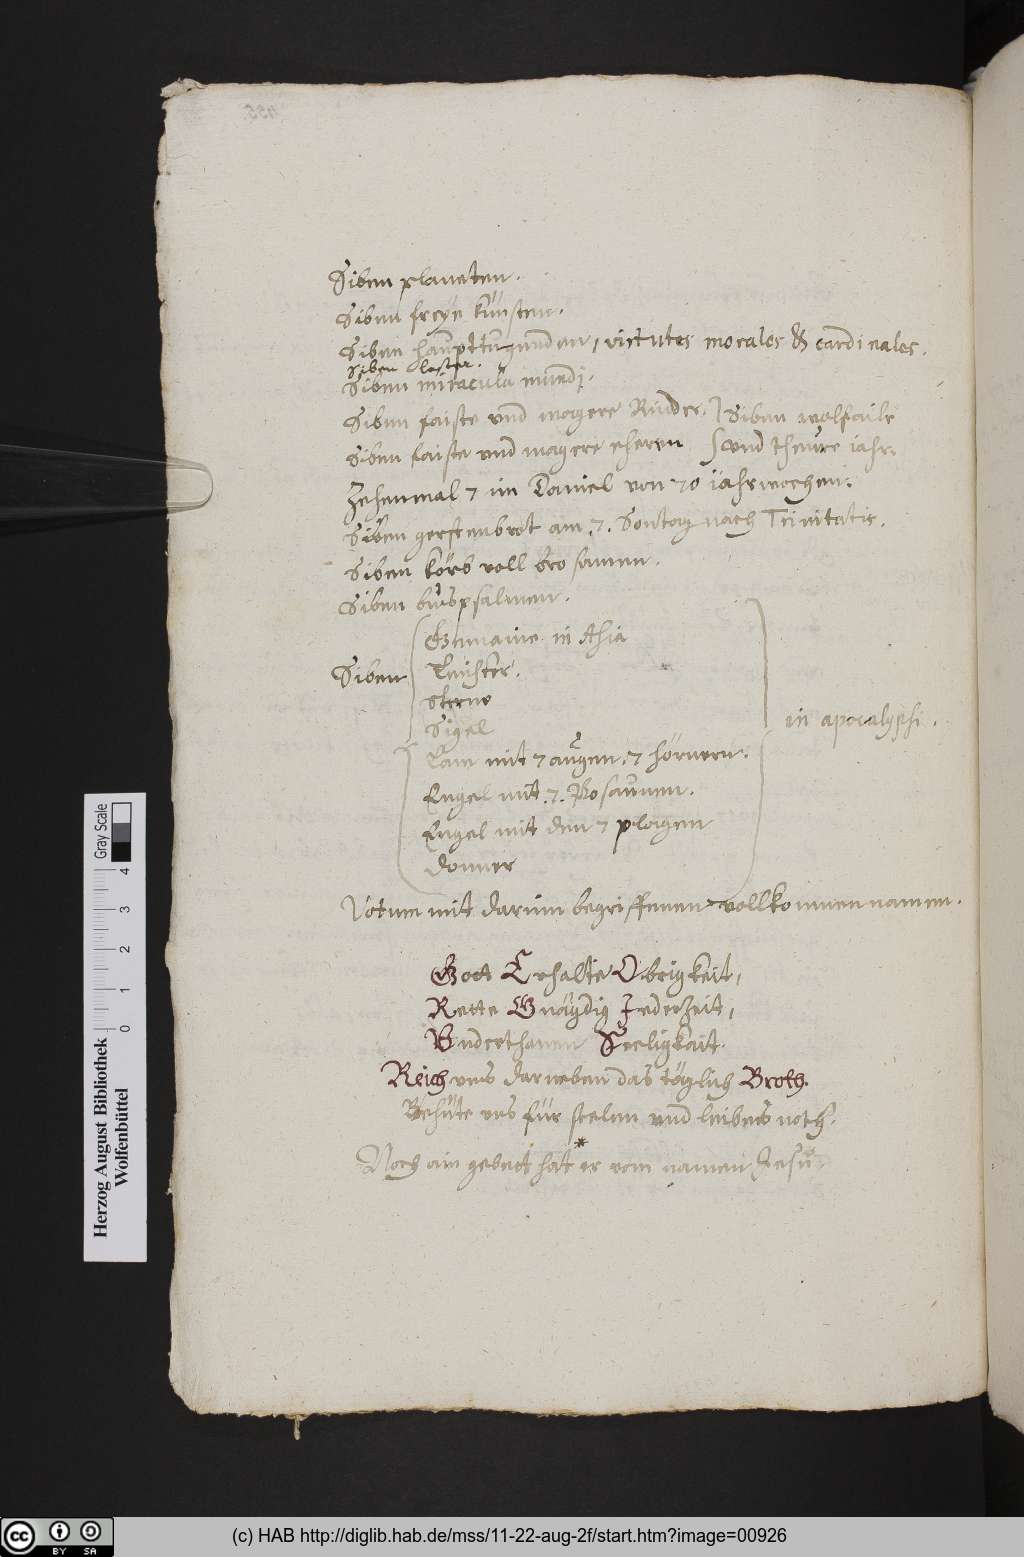 Siben planeten.
Siben freye künsten.
Siben haupttugunden, virtutes morales & cardinales.
Siben laster.
Siben miracula mundi.
Siben faiste vnd magere Rinder. Siben wolfaile
Siben faiste vnd magere eheren vnd theure iahr.
Zehenmal 7 im Daniel von 70 iahrwochen.
Siben gerstenbrot am 7. Sontag nach Trinitatis.
Siben körb voll brosamen.
Siben buspsalmen.
Gemaine in Asia
Siben Leuchter.
Sterne
Sigel
in apocalypsi.
Lam mit 7 augen, 7 hörnern.
Engel mit 7. Posaunen.
Engel mit den 7 plagen
donner
Votum mit darin begriffenen vollkommen namen.
Gott Erhalte Obrigkeit,
Rette Gnädig Jederzeit,
Vnderthanen Seeligkait.
Reich vns darneben das täglich Broth.
Behüte vns für seelen vnd leibes noth.
*
Noch ain gebett hat er vom namen Jesu.
Herzog August Bibliothek
Wolfenbüttel
Gray Scale
0 1 2 3 4
(c) HAB http://diglib.hab.de/mss/11-22-aug-2f/start.htm?image=00926
cc BY SA